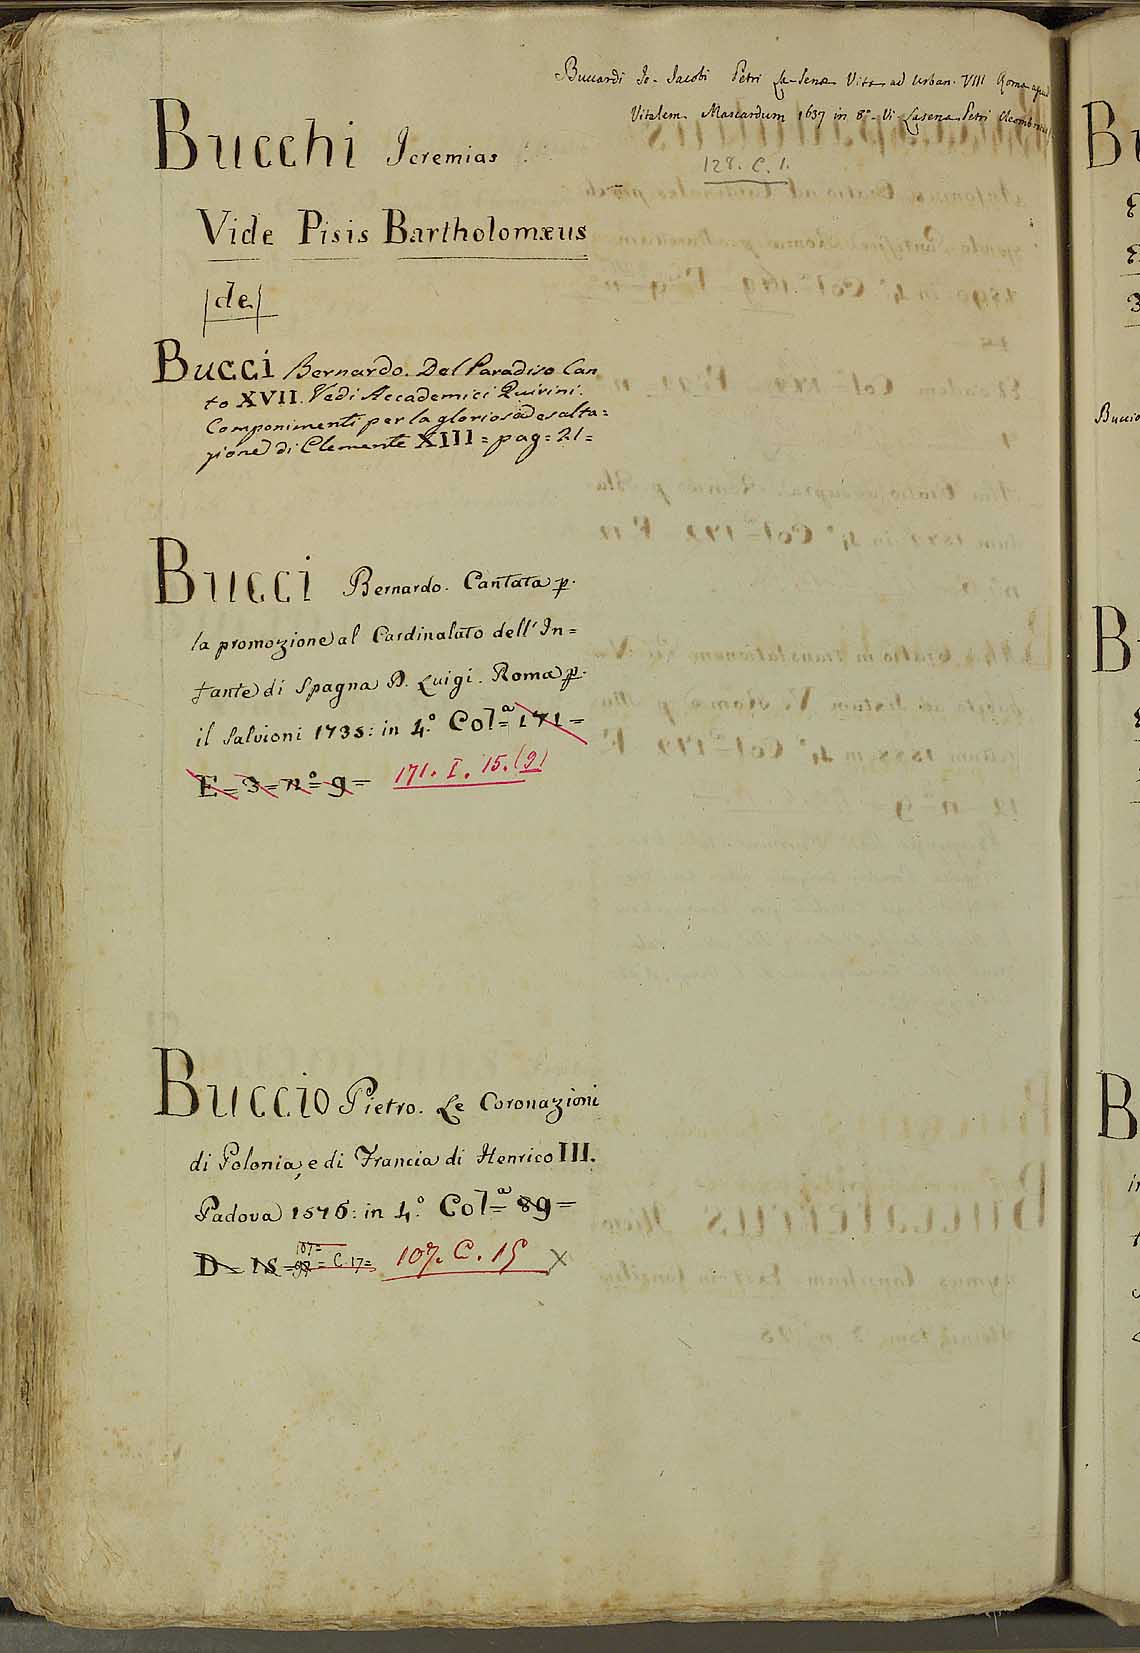 Buccardi Jo. Jacobi Petri La-Senæ Vita ad Urban. VIII Romæ apud
Vitalem Mascardum 1637 in 8º. Vi. Lasena Petri
128. C. 1.
Bucchi Jeremias
Vide Pisis Bartholomæus
|de|
Bucci Bernardo. Del Paradiso Can
to XVII. Vedi Accademici Quirini.
Componimenti per la gloriosa esalta=
zione di Clemente XIII = pag = 21 =
Bucci Bernardo. Cantata p.
la promozione al Cardinalato dell' In=
fante di Spagna D. Luigi. Roma p.
il Salvioni 1735: in 4º. Col=ª 171=
E = 3 = nº = 9 = 171. I. 15. (9)
Buccio Pietro. Le Coronazioni
di Polonia, e di Francia di Henrico III.
Padova 1576: in 4º. Col=ª 89=
107=
D = 18 = = C. 17= 107. C. 15 X
Bu
Buccio
B
B